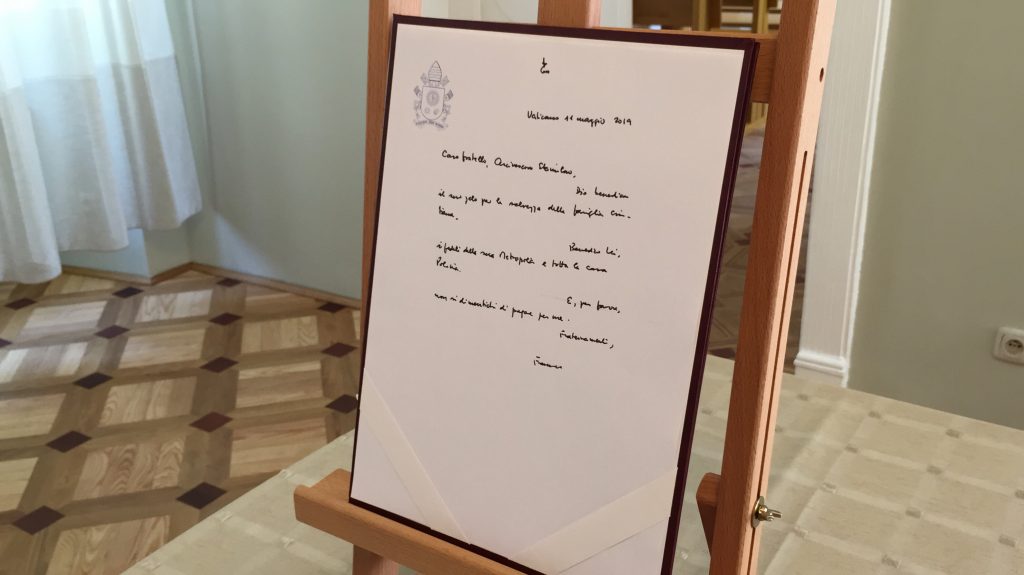 Vaticano 11 maggio 2019
Caro fratello, Arcivescovo Stanislao,
Dio benedica
il suo zelo per la salvezza delle famiglie cris-
tiane.
Benedico Lei,
i fedeli della sua Metropolia e tutta la cara
Polonia.
E, per favore,
non si dimentichi di pregare per me.
Fraternamente,
Francesco